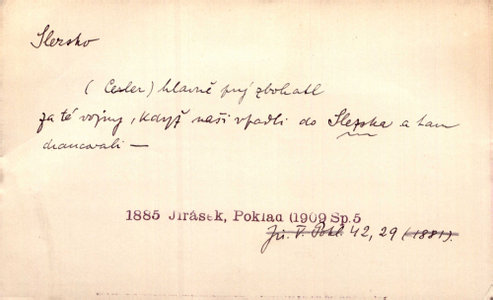 Slezsko
(Cesler) hlavně prý zbohatl
za té vojny, když naši vpadli do Slezska a tam
drancovali —
1885 Jirásek, Poklad (1909) Sp. 5
42, 29 (1881).